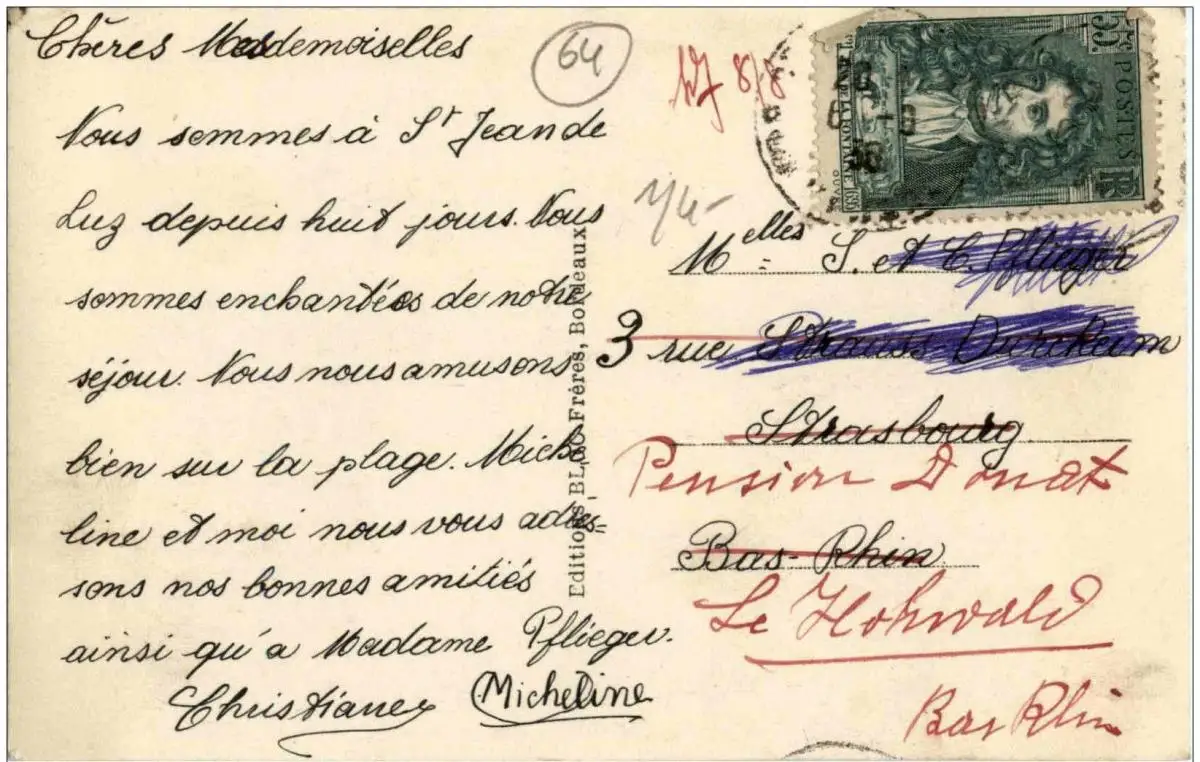 Chères Mesdemoiselles
Nous sommes à St Jean de
Luz depuis huit jours. Nous
sommes enchantées de notre
séjour. Nous nous amusons
bien sur la plage. Miche
line et moi nous vous adres=
sons nos bonnes amitiés
ainsi qu'a Madame Pflieger.
Christiane Micheline
64
8/8
1/4-
Editions BLOC Frères, Bordeaux
55c POSTES RF
JEAN DE LA FONTAINE
Melles S. et C. Pflieger
3 rue Strauss-Durckeim
Strasbourg
Pension Donat
Bas-Rhin
Le Hohwald
Bas Rhin